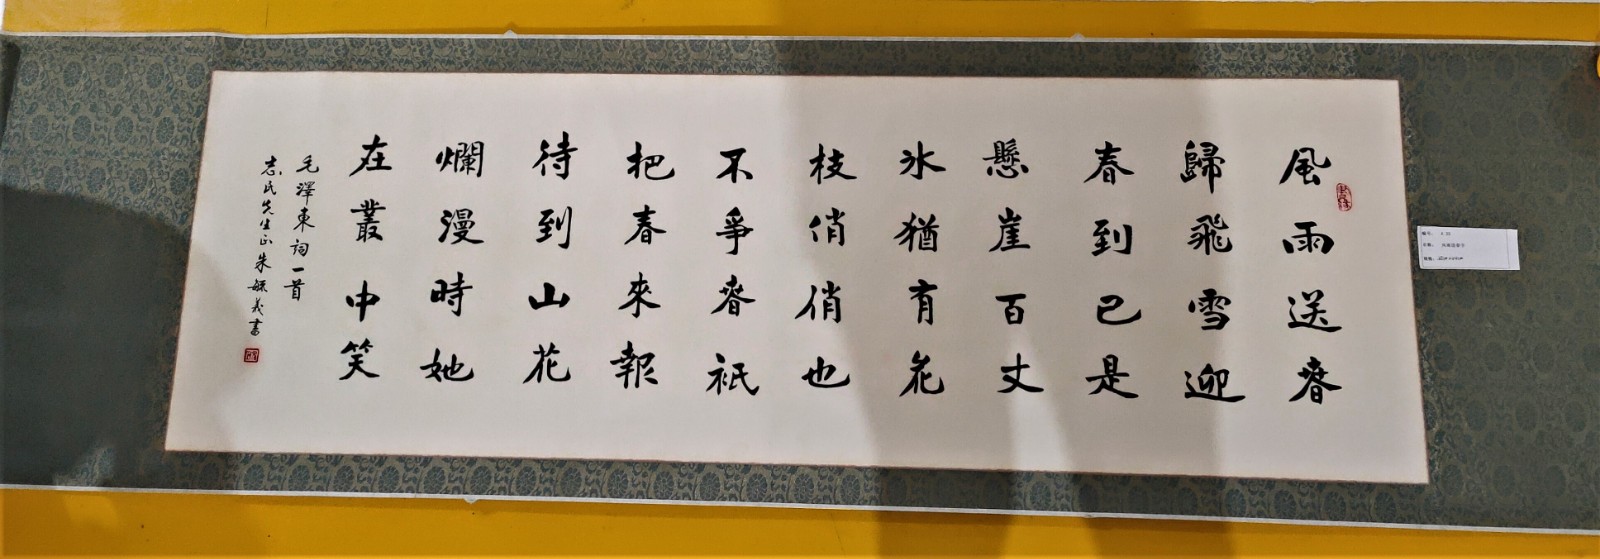 風雨送春
歸飛雪迎
春到已是
懸崖百丈
冰猶有花
枝俏
俏也
不爭春衹
把春來報
待到山花
爛漫時她
在叢中笑
毛澤東詞一首
志氏先生正朱毓義書